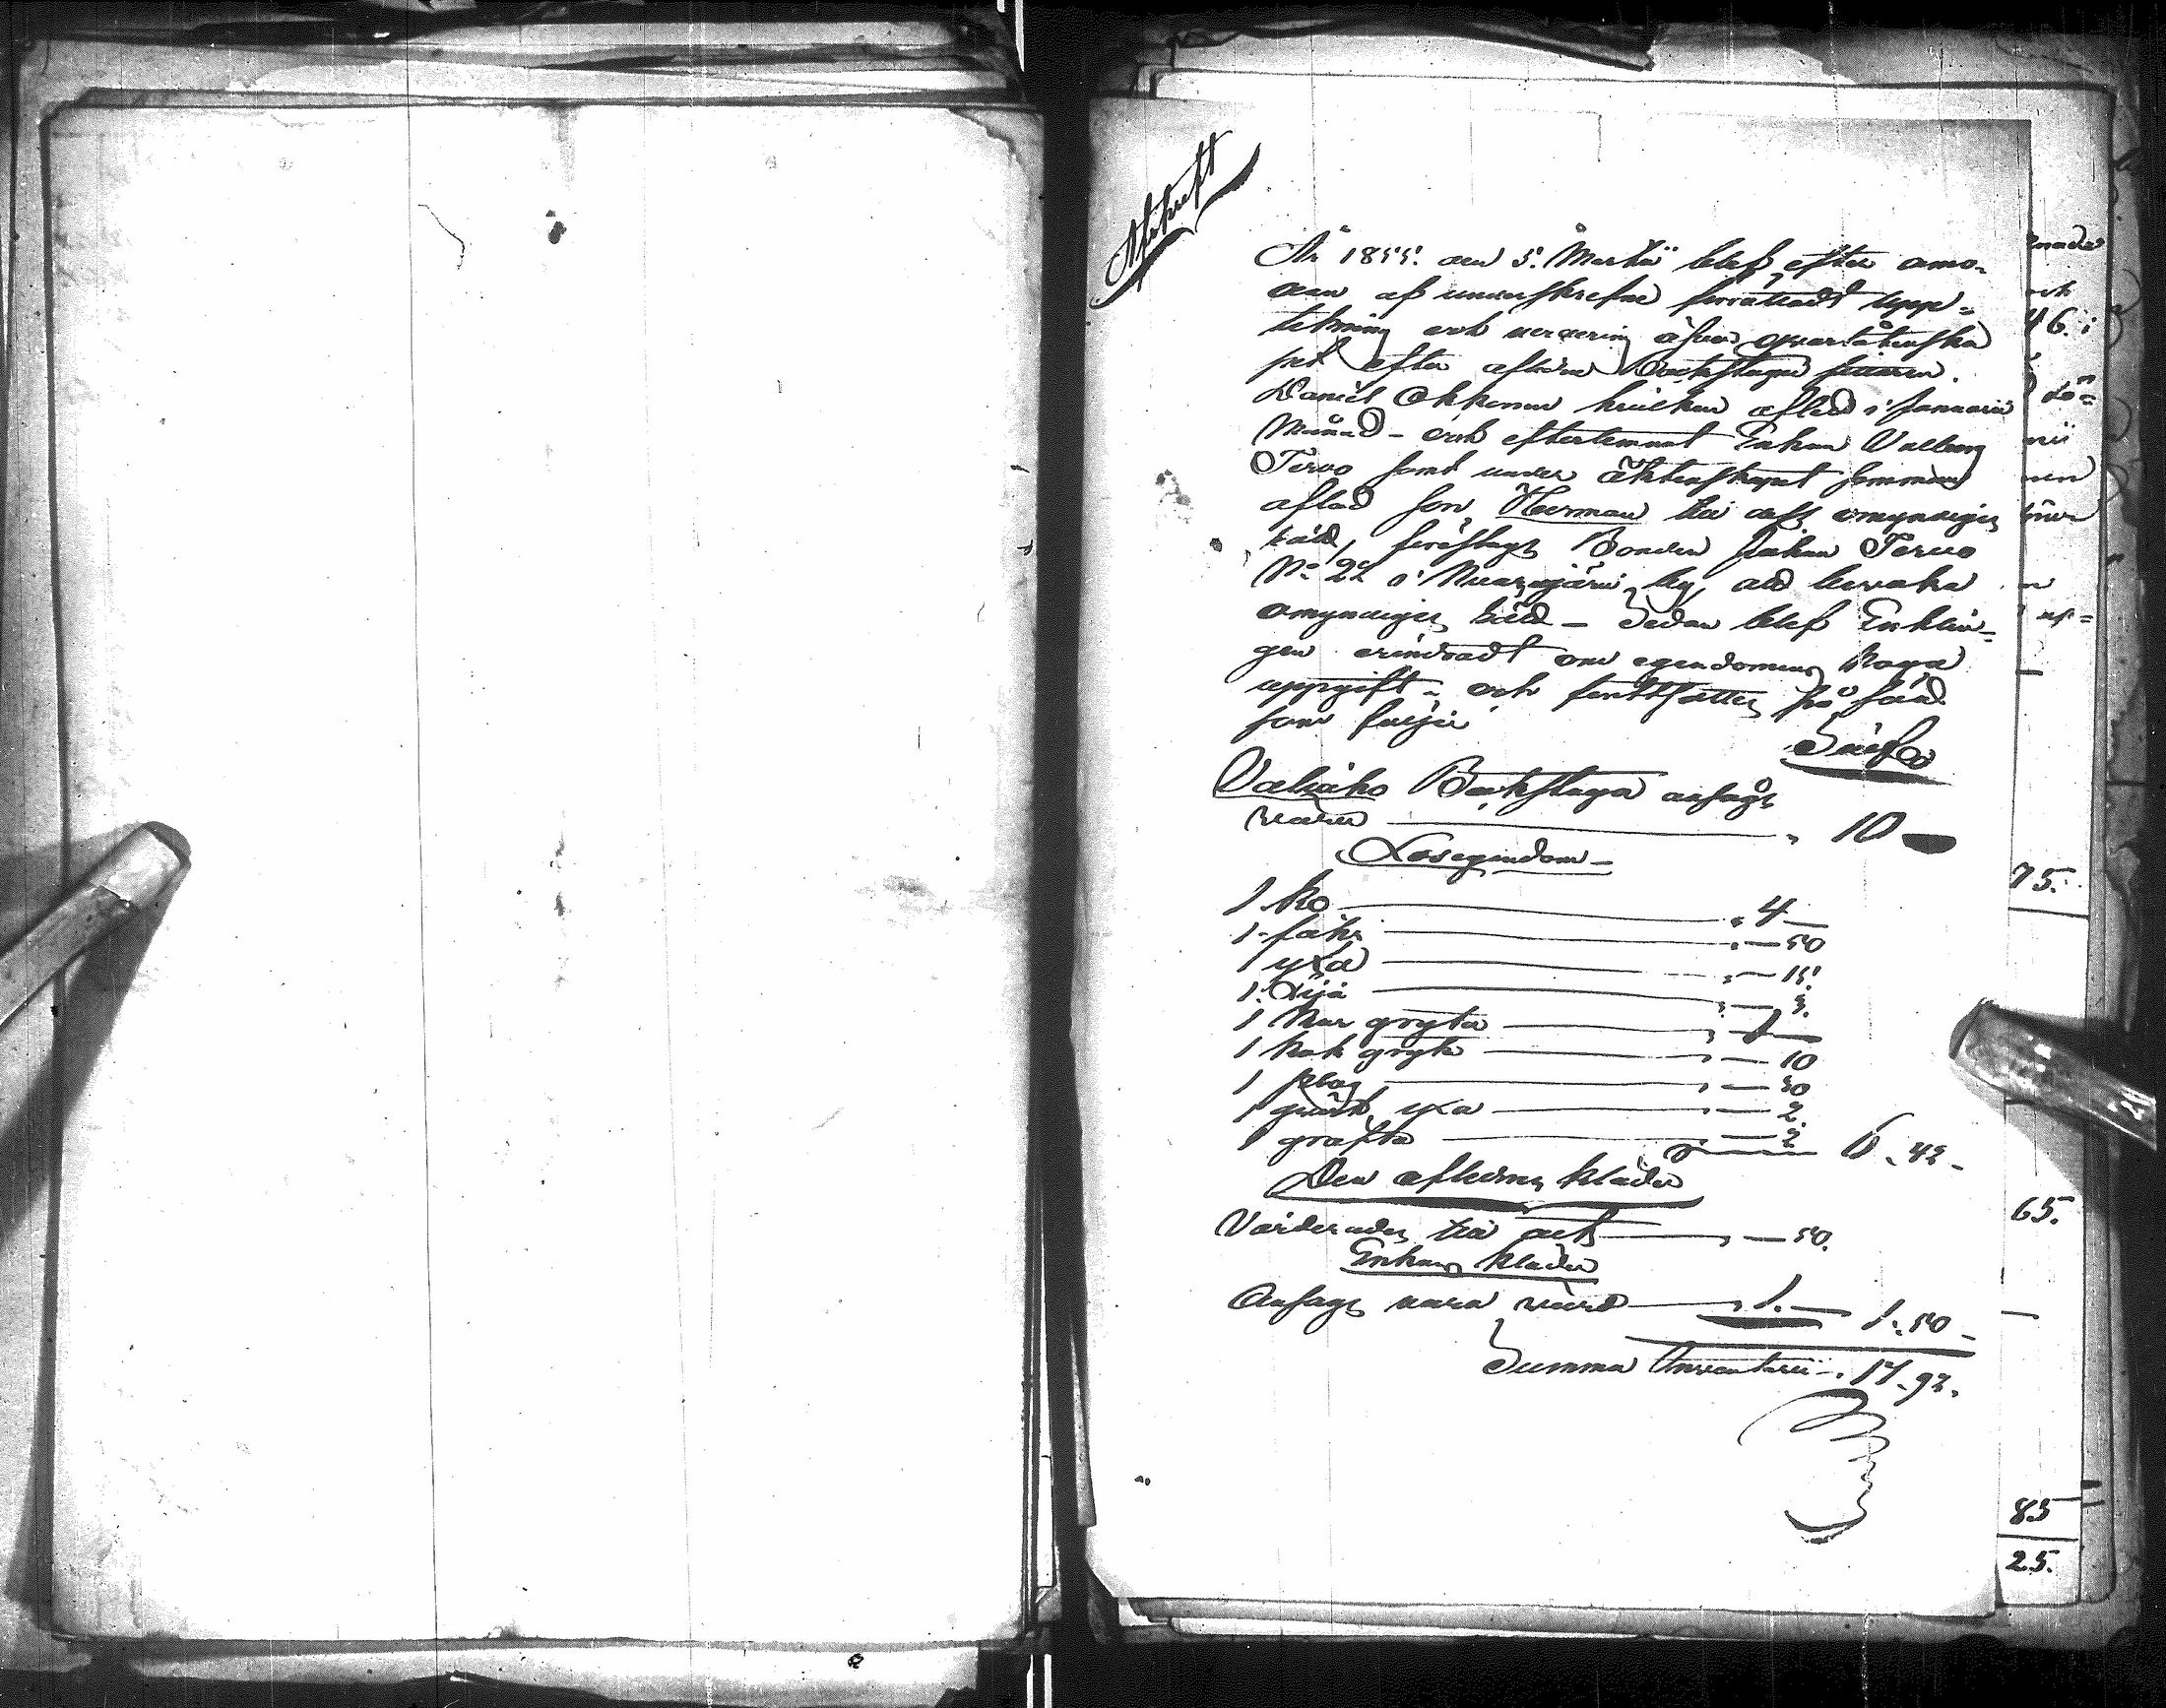 Afskrift
År 1855. den 5. Martii blef efter amo-
dan af underskrefne förrättadt upp-
tekning och värdering öfver qvarlåtenska
pet efter aflidne Backstugu sittaren
Daniel Okkonen hvilken afled i Januarii
Månad – och efterlemnat Enkan Valborg
Tervo samt under äktenskapet sammans
aflad son Herman til dess omyndiges
råd, föreslags Bonden Johan Tervo
No 22 i by, att bevaka
omyndiges råd – Sedan blef Enklin-
gen erindradt om egendomens noga
uppgift – och fortsattes på sätt
som följer
Silfver
Valiaho Backstuga ansågs
värd " 10 —
Lösegendom –
1 ko " 4 —
1 fåhr " — 50
1 yxa " — 15.
1. Lija " — 3.
1 Mur gryta " 1 —
1 kok gryta " — 10
1 plog " — 30
1 yxa " — 2
1 grafta — 2. 6. 42 –
Den aflednes kläder
Värderades till ett " — 50.
Enkans kläder
Ansågs vara värd " 1. — 1. 50 –
Summa Inventarii . 17. 92.
made
och
46. i
dö=
nii
nen
af=
75.
65.
85
25.